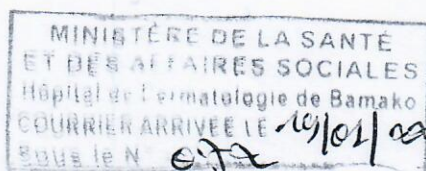 MINISTÈRE DE LA SANTÉ
ET DES AFFAIRES SOCIALES
Hôpital de Dermatologie de Bamako
COURRIER ARRIVÉE LE 19/01/
Sous le N